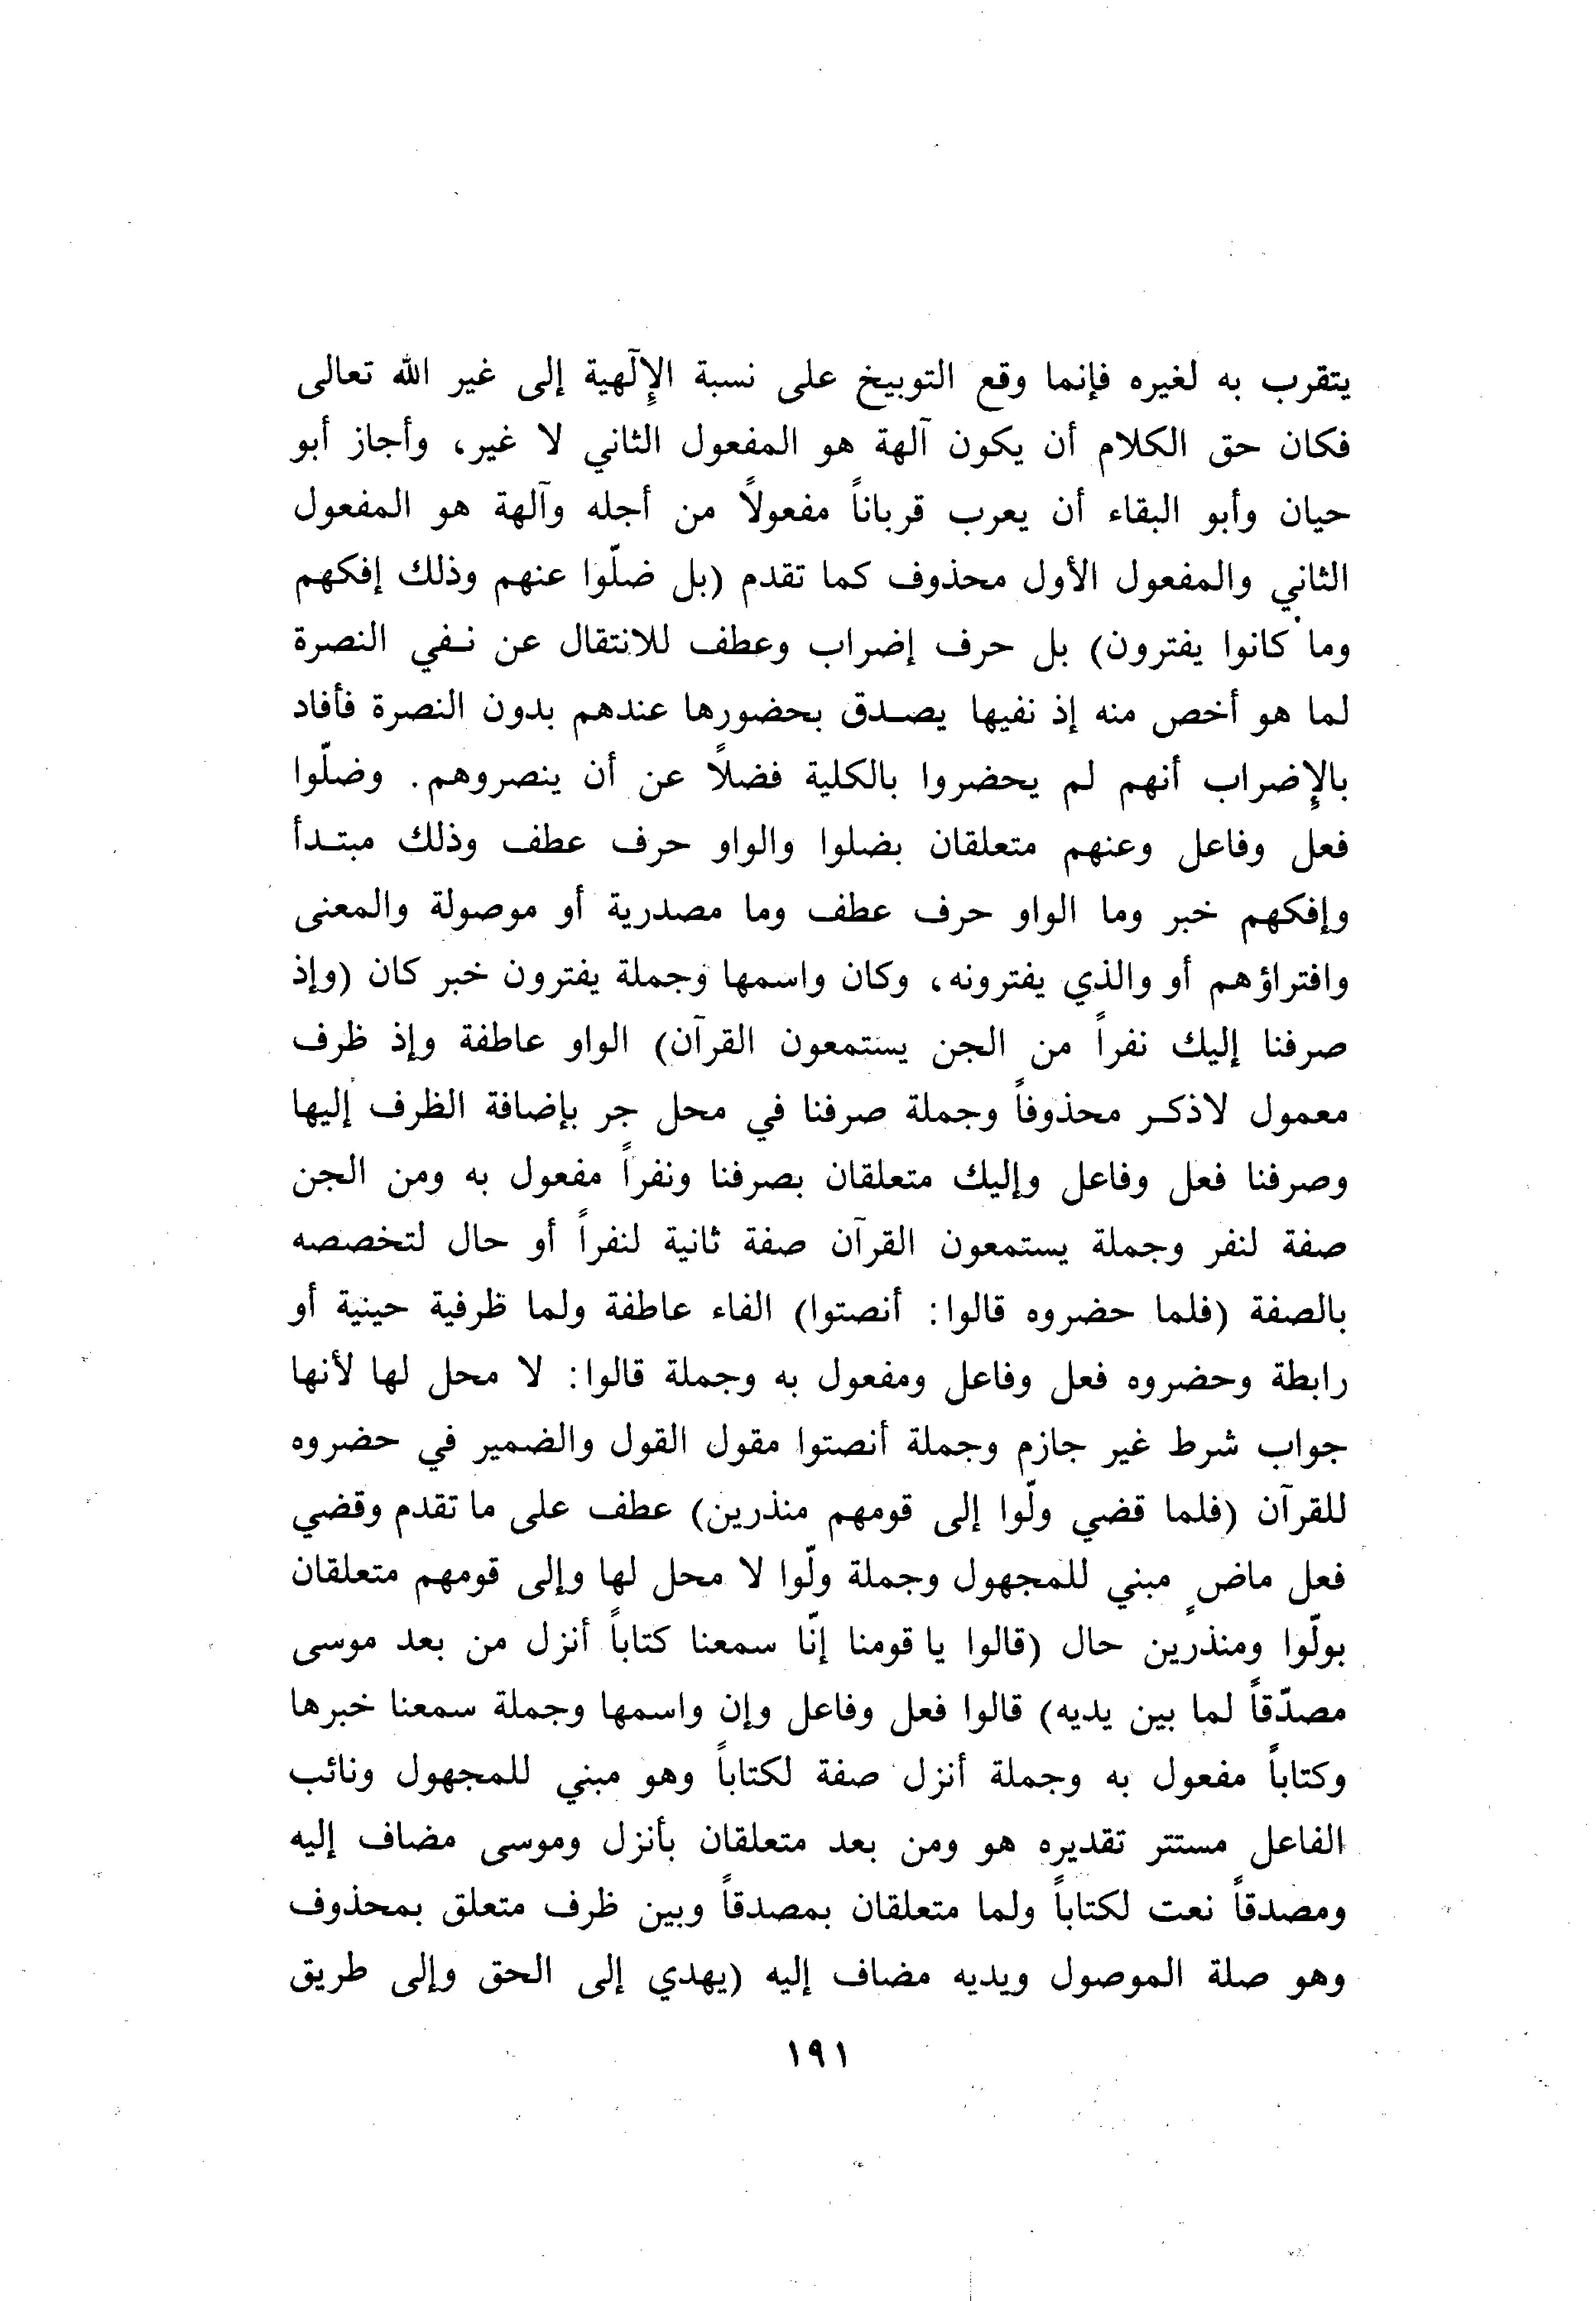 يتقرب به لغيره فإنما وقع التوبيخ على نسبة الإلٓهية إلى غير الله تعالى
فكان حق الكلام أن يكون آلهة هو المفعول الثاني لا غير، وأجاز أبو
حيان وأبو البقاء أن يعرب قرباناً مفعولاً من أجله وآلهة هو المفعول
الثاني والمفعول الأول محذوف كما تقدم (بل ضلّوا عنهم وذلك إفكهم
وما كانوا يفترون) بل حرف إضراب وعطف للانتقال عن نـفي النصرة
لما هو أخص منه إذ نفيها يصـدق بحضورها عندهم بدون النصرة فأفاد
بالإضراب أنهم لم يحضروا بالكلية فضلاً عن أن ينصروهم. وضلّوا
فعل وفاعل وعنهم متعلقان بضلوا والواو حرف عطف وذلك مبتـدأ
وإفكهم خبر وما الواو حرف عطف وما مصدرية أو موصولة والمعنى
وافتراؤهم أو والذي يفترونه، وكان واسمها وجملة يفترون خبر كان (وإذ
صرفنا إليك نفراً من الجن يستمعون القرآن) الواو عاطفة وإذ ظرف
معمول لاذكـر محذوفاً وجملة صرفنا في محل جر بإضافة الظرف إليها
وصرفنا فعل وفاعل وإليك متعلقان بصرفنا ونفراً مفعول به ومن الجن
صفة لنفر وجملة يستمعون القرآن صفة ثانية لنفراً أو حال لتخصصه
بالصفة (فلما حضروه قالوا: أنصتوا) الفاء عاطفة ولما ظرفية حينية أو
رابطة وحضروه فعل وفاعل ومفعول به وجملة قالوا: لا محل لها لأنها
جواب شرط غير جازم وجملة أنصتوا مقول القول والضمير في حضروه
للقرآن (فلما قضي ولّوا إلى قومهم منذرين) عطف على ما تقدم وقضي
فعل ماضٍ مبني للمجهول وجملة ولّوا لا محل لها وإلى قومهم متعلقان
بولّوا ومنذرين حال (قالوا يا قومنا إنّا سمعنا كتاباً أنزل من بعد موسى
مصدّقاً لما بين يديه) قالوا فعل وفاعل وإن واسمها وجملة سمعنا خبرها
وكتاباً مفعول به وجملة أنزل صفة لكتاباً وهو مبني للمجهول ونائب
الفاعل مستتر تقديره هو ومن بعد متعلقان بأنزل وموسى مضاف إليه
ومصدقاً نعت لكتاباً ولما متعلقان بمصدقاً وبين ظرف متعلق بمحذوف
وهو صلة الموصول ويديه مضاف إليه (يهدي إلى الحق وإلى طريق
١٩١